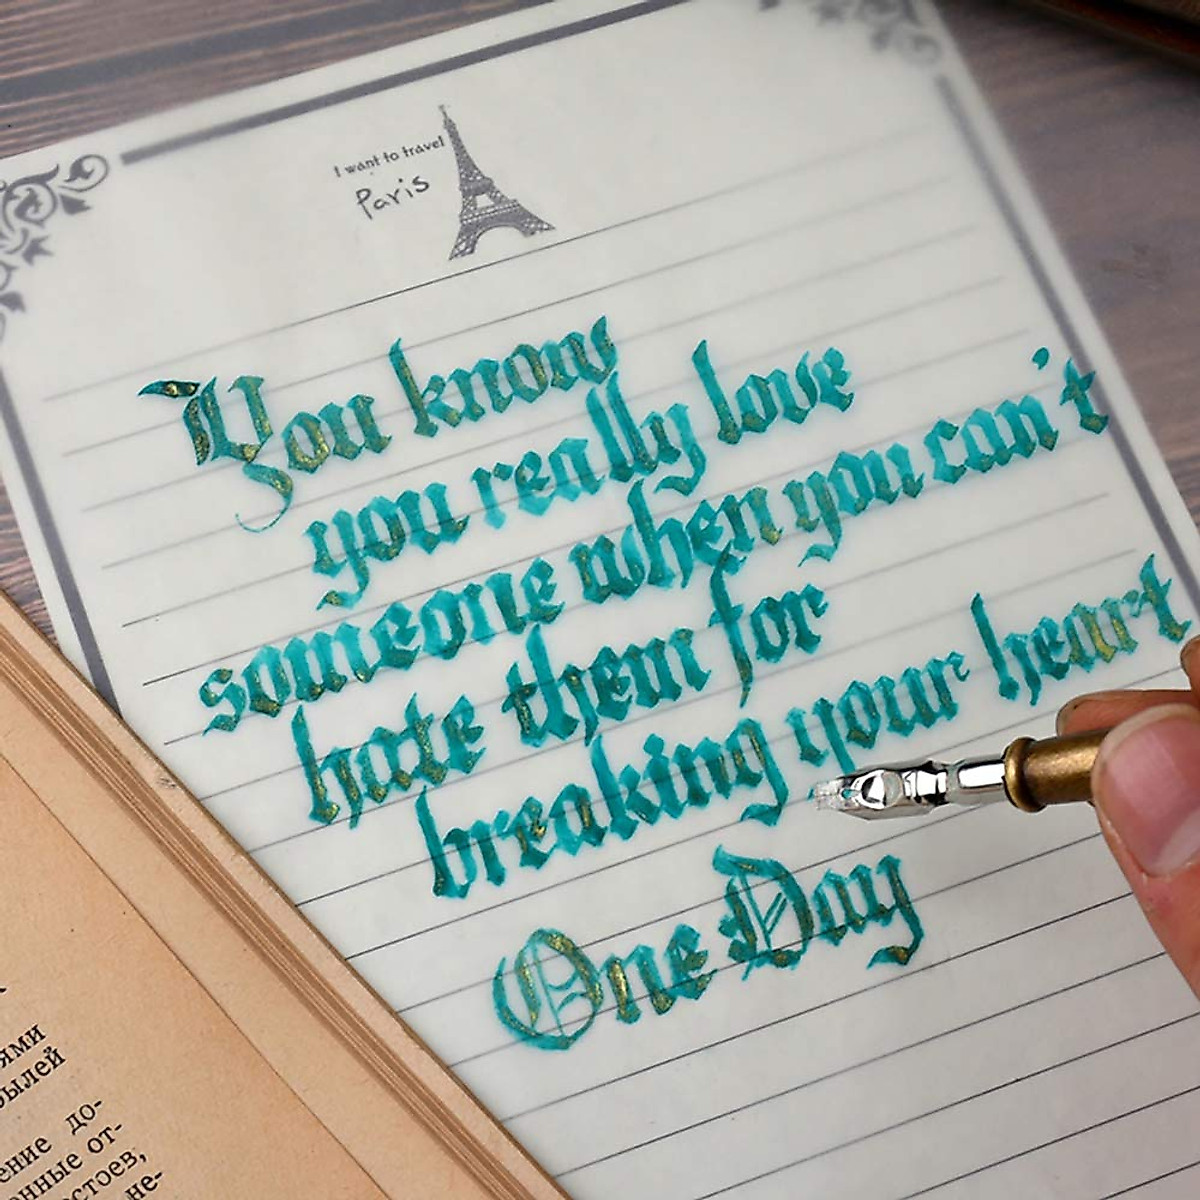 I want to travel
Paris
You know
you really love
someone when you can't
hate them for
breaking your heart
One Day
ями
былей
ение до-
онные от-
стоев,
не-